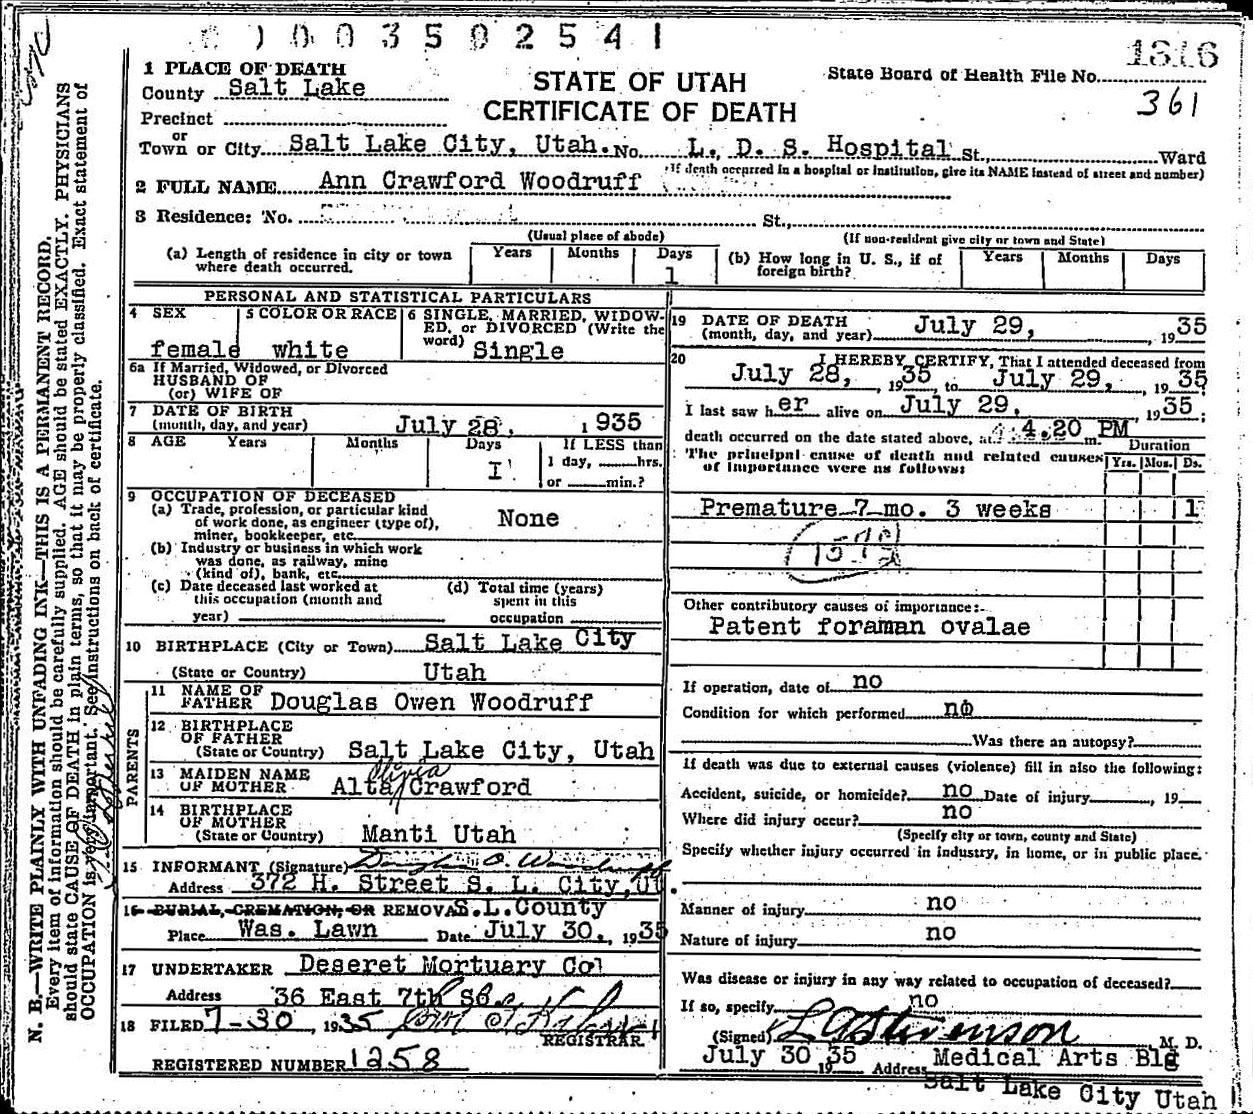 0003502541
1316
361
STATE OF UTAH
CERTIFICATE OF DEATH
State Board of Health File No.
1 PLACE OF DEATH
County Salt Lake
Precinct
or
Town or City Salt Lake City, Utah. No. L. D. S. Hospital St., Ward
(If death occurred in a hospital or institution, give its NAME instead of street and number)
2 FULL NAME Ann Crawford Woodruff
3 Residence: No. St.,
(Usual place of abode) (If non-resident give city or town and State)
(a) Length of residence in city or town where death occurred. Years Months Days 1
(b) How long in U. S., if of foreign birth? Years Months Days
PERSONAL AND STATISTICAL PARTICULARS
4 SEX female
5 COLOR OR RACE white
6 SINGLE, MARRIED, WIDOWED, or DIVORCED (Write the word) Single
6a If Married, Widowed, or Divorced
HUSBAND OF
(or) WIFE OF
7 DATE OF BIRTH
(month, day, and year) July 28, 1935
8 AGE Years Months Days I
If LESS than
1 day, hrs.
or min.?
9 OCCUPATION OF DECEASED
(a) Trade, profession, or particular kind
of work done, as engineer (type of),
miner, bookkeeper, etc. None
(b) Industry or business in which work
was done, as railway, mine
(kind of), bank, etc.
(c) Date deceased last worked at
this occupation (month and
year)
(d) Total time (years)
spent in this
occupation
10 BIRTHPLACE (City or Town) Salt Lake City
(State or Country) Utah
PARENTS
11 NAME OF
FATHER Douglas Owen Woodruff
12 BIRTHPLACE
OF FATHER
(State or Country) Salt Lake City, Utah
13 MAIDEN NAME
OF MOTHER Alta Olivia Crawford
14 BIRTHPLACE
OF MOTHER
(State or Country) Manti Utah
15 INFORMANT (Signature) Douglas O. Woodruff
Address 372 H. Street S. L. City, Ut.
16 BURIAL, CREMATION, OR REMOVAL S.L.County
Place Was. Lawn Date July 30., 1935
17 UNDERTAKER Deseret Mortuary Co
Address 36 East 7th So.
18 FILED 7-30, 1935
REGISTRAR
REGISTERED NUMBER 1258
19 DATE OF DEATH
(month, day, and year) July 29, 1935
20 I HEREBY CERTIFY, That I attended deceased from
July 28, 1935 to July 29, 1935
I last saw her alive on July 29, 1935;
death occurred on the date stated above, at 4.20 PM m.
The principal cause of death and related causes
of importance were as follows:
Duration
Yrs. Mos. Ds.
Premature 7 mo. 3 weeks 1
Other contributory causes of importance:
Patent foraman ovalae
If operation, date of no
Condition for which performed no
Was there an autopsy?
If death was due to external causes (violence) fill in also the following:
Accident, suicide, or homicide? no Date of injury , 19
Where did injury occur? no
(Specify city or town, county and State)
Specify whether injury occurred in industry, in home, or in public place.
Manner of injury no
Nature of injury no
Was disease or injury in any way related to occupation of deceased?
If so, specify no
(Signed) L A Stevenson M. D.
July 30 1935 Address Medical Arts Blg
Salt Lake City Utah
N. B.—WRITE PLAINLY WITH UNFADING INK—THIS IS A PERMANENT RECORD.
Every item of information should be carefully supplied. AGE should be stated EXACTLY. PHYSICIANS
should state CAUSE OF DEATH in plain terms, so that it may be properly classified. Exact statement of
OCCUPATION is very important. See instructions on back of certificate.